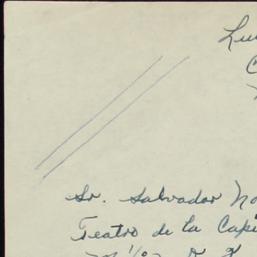 Lui
C
Sr. Salvador No
Teatro de la Capi